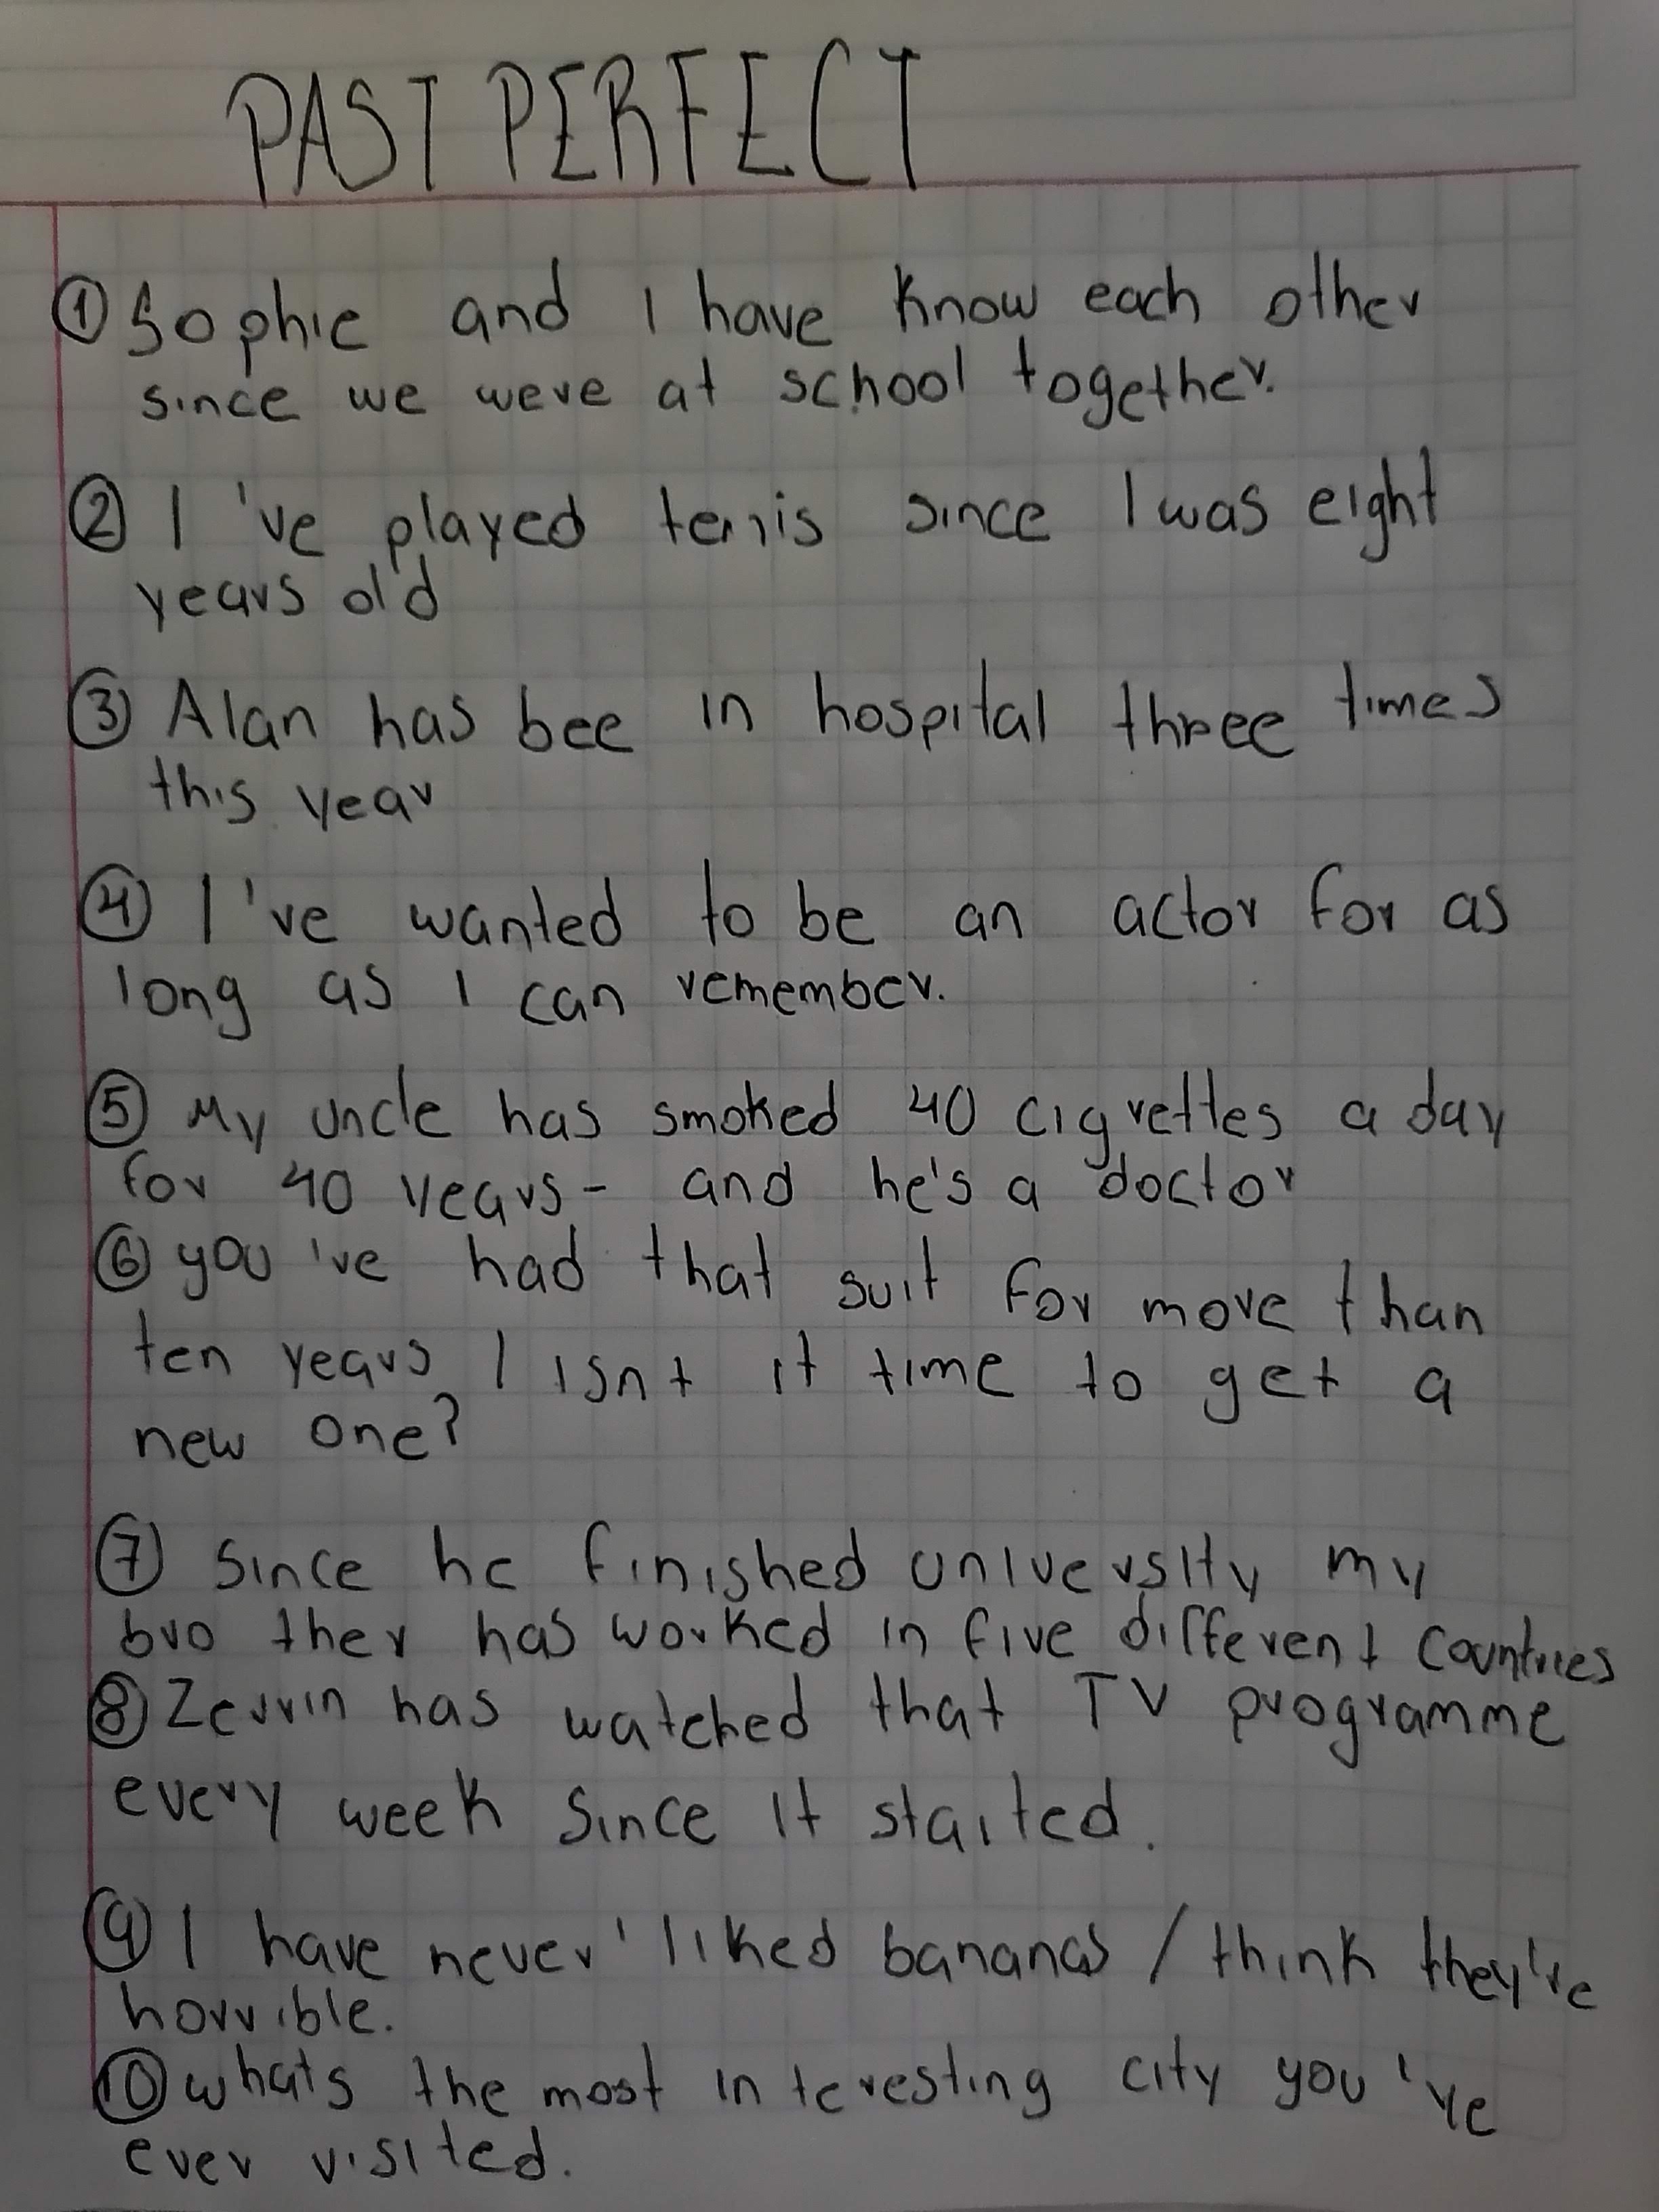 PAST PERFECT
① Sophie and I have know each other
since we were at school together.
② I 've played tennis since I was eight
years old
③ Alan has bee in hospital three times
this year
④ I 've wanted to be an actor for as
long as I can remember.
⑤ My uncle has smoked 40 cigrettes a day
for 40 years - and he's a doctor
⑥ you 've had that suit for more than
ten years / isnt it time to get a
new one?
⑦ Since he finished university my
bro ther has worked in five different countries
⑧ Zerrin has watched that TV programme
every week since it started.
⑨ I have never ' liked bananas / think they're
horrible.
⑩ whats the most interesting city you 've
ever visited.